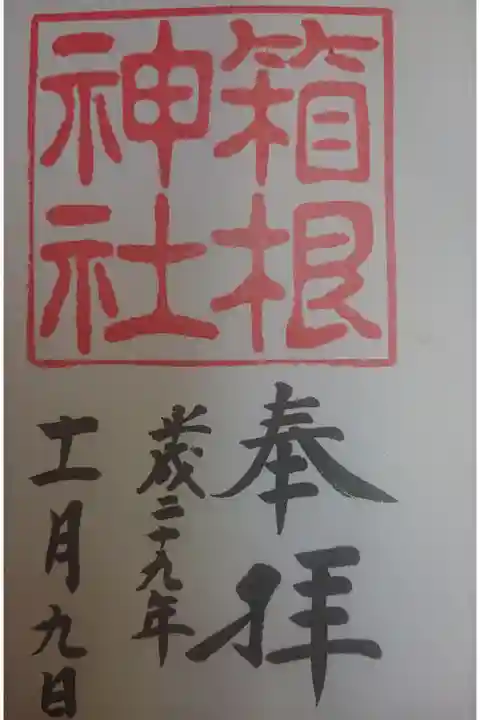 箱根
神社
奉拝
平成二十九年
十一月九日